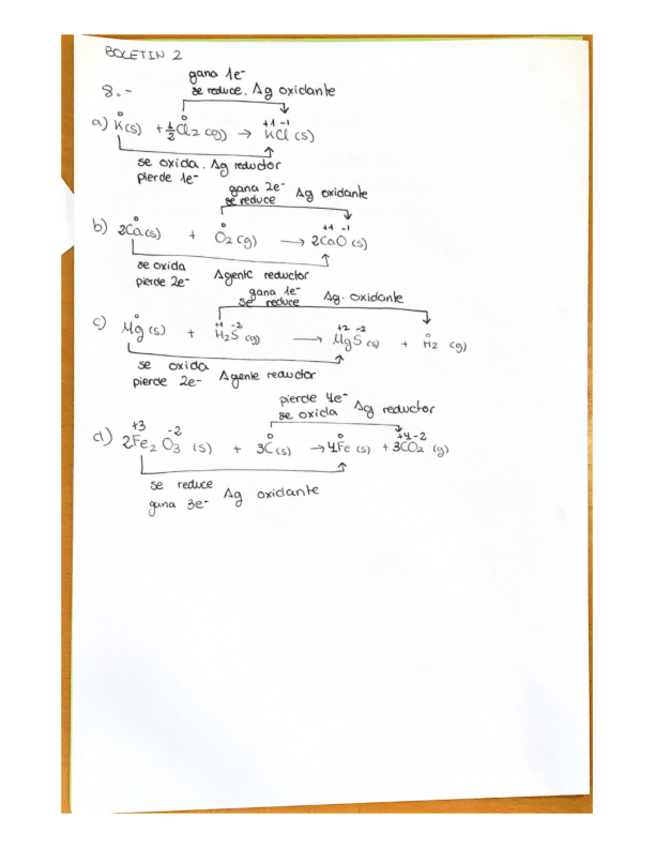 BOLETIN 2
8.-
gana 1e-
se reduce. Ag oxidante
0 0 +1 -1
a) K(s) + 1/2 Cl2 (g) → KCl (s)
se oxida. Ag reductor
pierde 1e-
gana 2e- Ag oxidante
se reduce
0 0 +1 -1
b) 2Ca(s) + O2 (g) → 2CaO (s)
se oxida
pierde 2e- Agente reductor
gana 1e-
se reduce Ag. oxidante
0 +1 -2 +2 -2 0
c) Mg (s) + H2S (g) → MgS (s) + H2 (g)
se oxida
pierde 2e- Agente reductor
pierde 4e-
se oxida Ag reductor
+3 -2 0 0 +4 -2
d) 2Fe2O3 (s) + 3C(s) → 4Fe (s) + 3CO2 (g)
se reduce
gana 3e- Ag oxidante